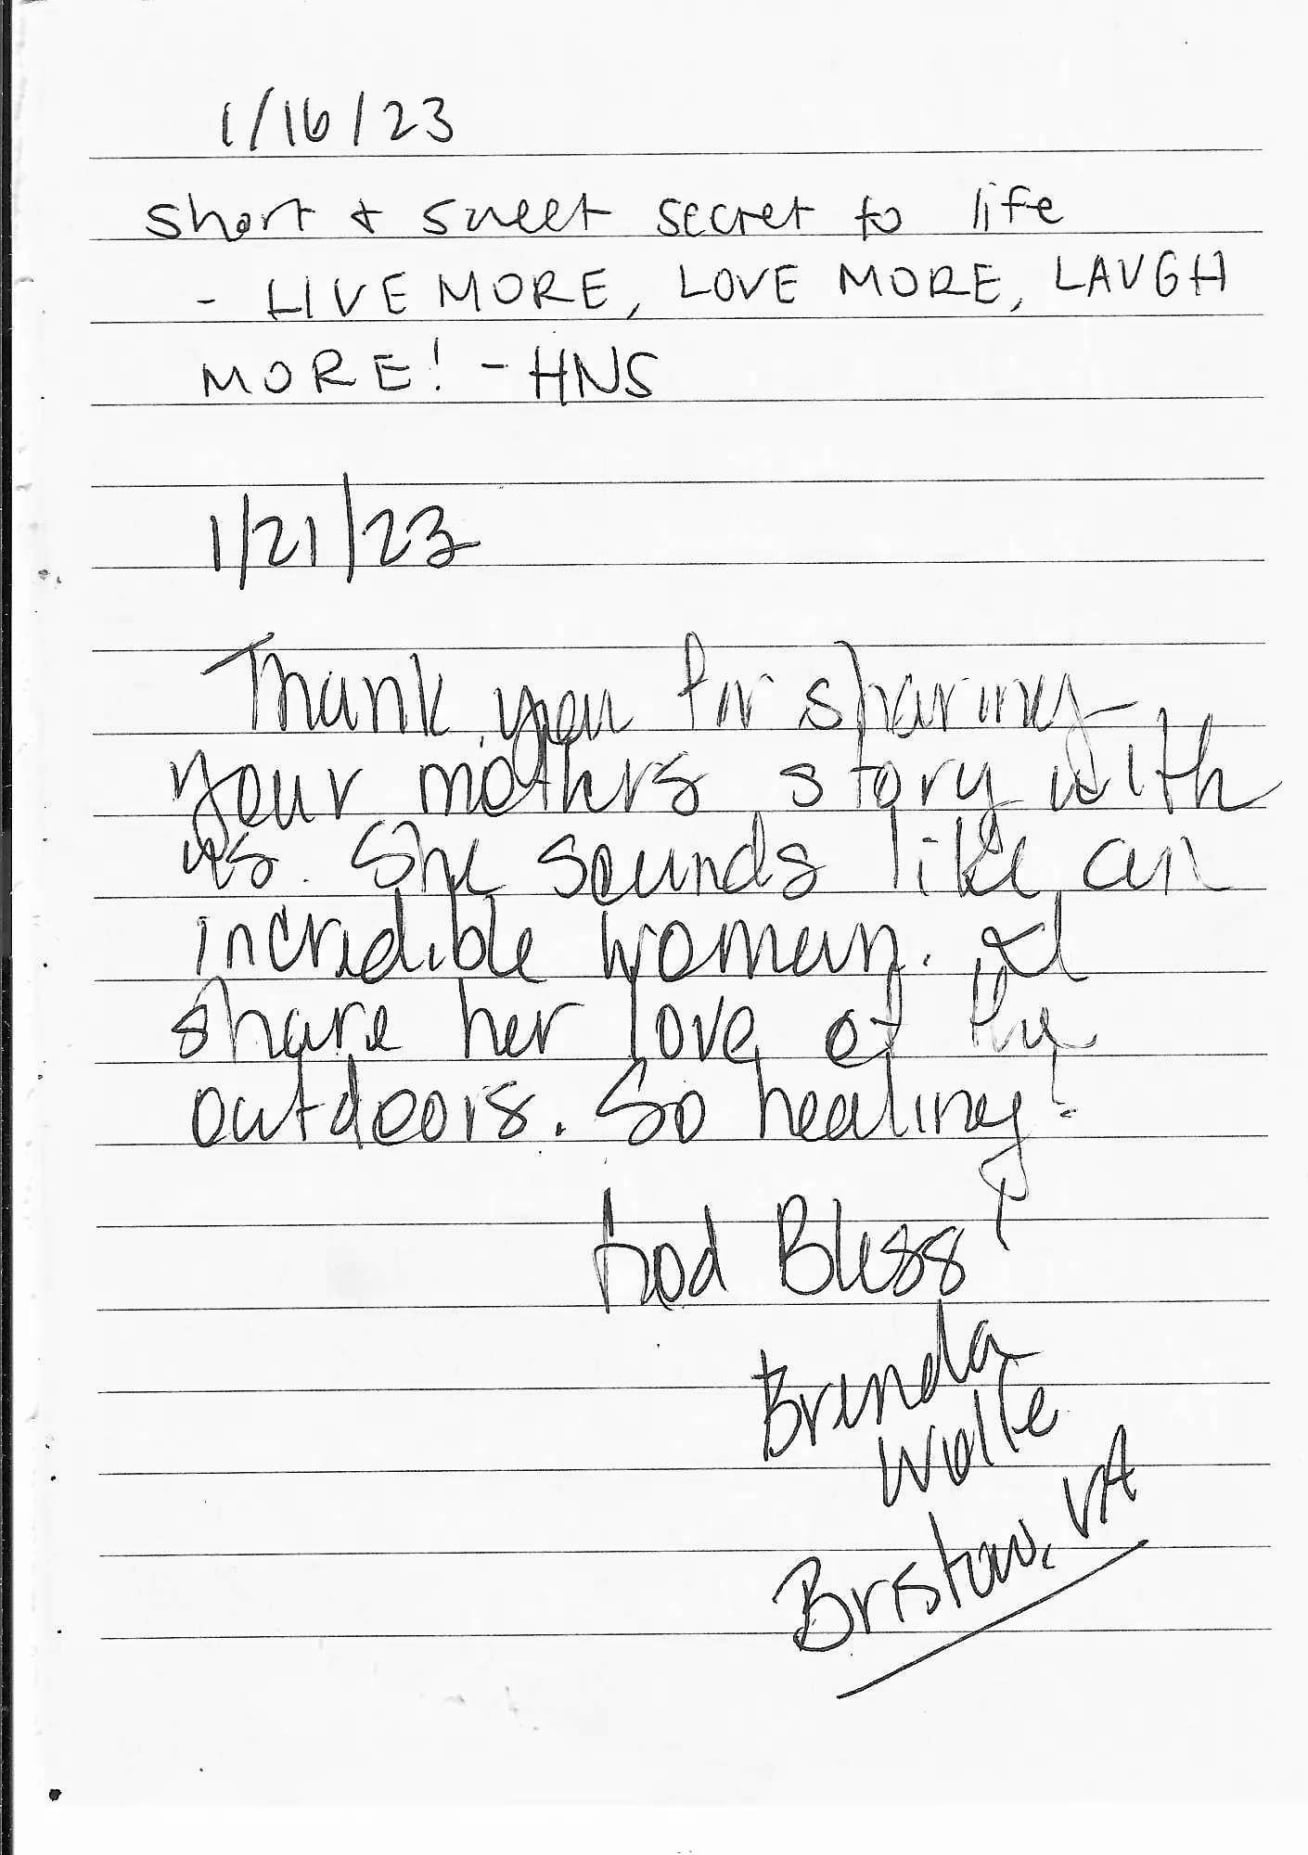 1/16/23
short + sweet secret to life
- LIVE MORE, LOVE MORE, LAUGH
MORE! - HNS
1/21/23
Thank you for sharing
your mothers story with
us. She sounds like an
incredible woman. I
share her love of the
outdoors. So healing!
God Bless!
Brenda
Wolfe
Bristow, VA